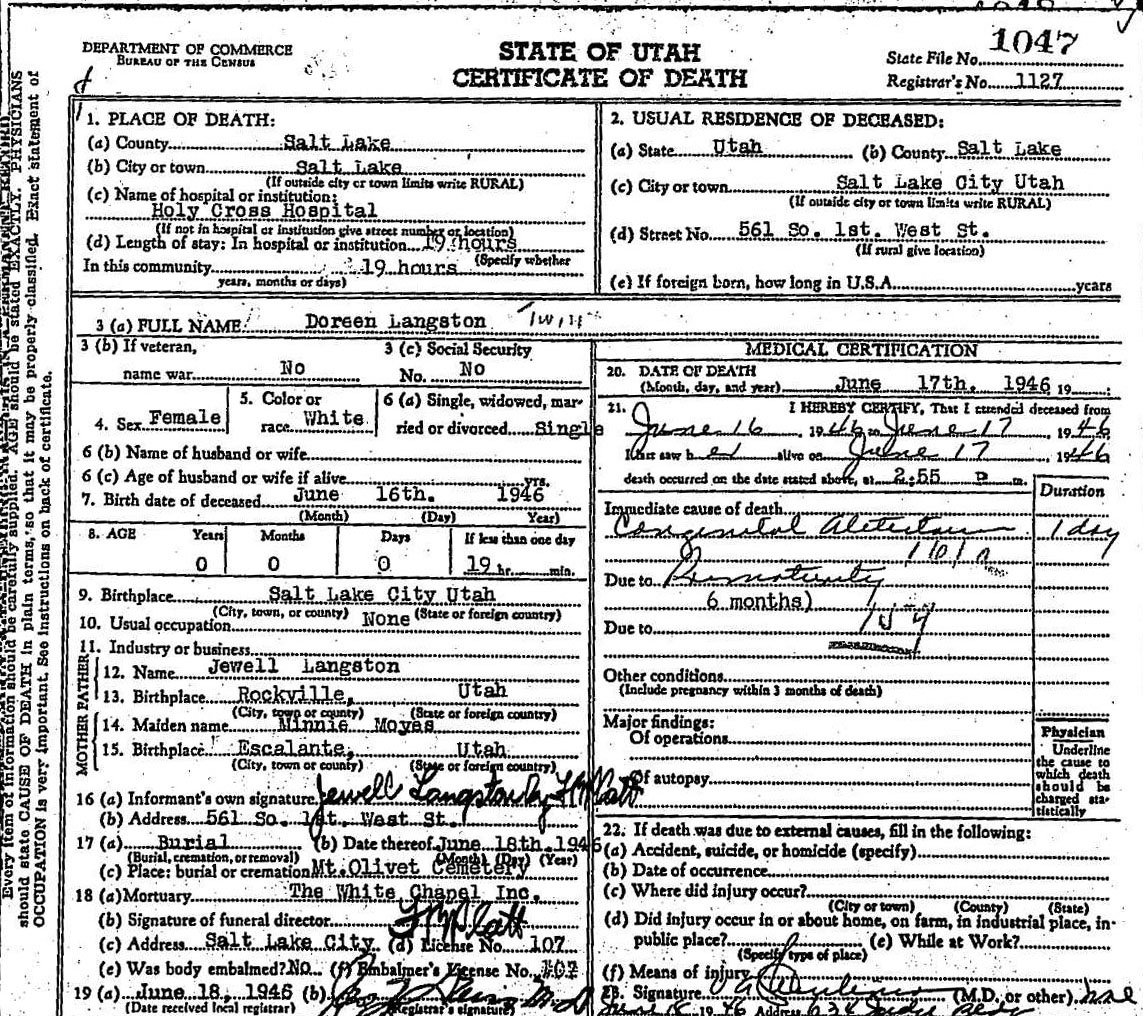 1047
DEPARTMENT OF COMMERCE
BUREAU OF THE CENSUS
STATE OF UTAH
CERTIFICATE OF DEATH
State File No.
Registrar's No. 1127
1. PLACE OF DEATH:
(a) County Salt Lake
(b) City or town Salt Lake
(If outside city or town limits write RURAL)
(c) Name of hospital or institution:
Holy Cross Hospital
(If not in hospital or institution give street number or location)
(d) Length of stay: In hospital or institution 19 hours
(Specify whether
In this community 19 hours
years, months or days)
2. USUAL RESIDENCE OF DECEASED:
(a) State Utah (b) County Salt Lake
(c) City or town Salt Lake City Utah
(If outside city or town limits write RURAL)
(d) Street No. 561 So. 1st. West St.
(If rural give location)
(e) If foreign born, how long in U.S.A. years
3 (a) FULL NAME: Doreen Langston Twin
3 (b) If veteran,
name war No
3 (c) Social Security
No. No
4. Sex Female
5. Color or
race White
6 (a) Single, widowed, mar-
ried or divorced Single
6 (b) Name of husband or wife
6 (c) Age of husband or wife if alive yrs.
7. Birth date of deceased June 16th. 1946
(Month) (Day) Year)
8. AGE Years Months Days If less than one day
0 0 0 19 hr. min.
9. Birthplace Salt Lake City Utah
(City, town, or county) (State or foreign country)
10. Usual occupation None
11. Industry or business
FATHER
12. Name Jewell Langston
13. Birthplace Rockville, Utah
(City, town or county) (State or foreign country)
MOTHER
14. Maiden name Minnie Moyes
15. Birthplace Escalante, Utah
(City, town or county) (State or foreign country)
16 (a) Informant's own signature Jewell Langston by
(b) Address 561 So. 1st. West St.
17 (a) Burial (b) Date thereof June 18th. 1946
(Burial, cremation, or removal) (Month) (Day) (Year)
(c) Place: burial or cremation Mt. Olivet Cemetery
18 (a) Mortuary The White Chapel Inc.
(b) Signature of funeral director
(c) Address Salt Lake City (d) License No. 107
(e) Was body embalmed? No (f) Embalmer's License No. 107
19 (a) June 18, 1946 (b)
(Date received local registrar) (Registrar's signature)
MEDICAL CERTIFICATION
20. DATE OF DEATH
(Month, day, and year) June 17th. 1946 19
21. I HEREBY CERTIFY, That I attended deceased from
June 16, 1946 to June 17 1946
I last saw her alive on June 17 1946
death occurred on the date stated above, at 2:55 P m.
Duration
Immediate cause of death
Congenital 1 day
Due to Prematurity
6 months)
Due to
Other conditions
(Include pregnancy within 3 months of death)
Major findings:
Of operations
Of autopsy
Physician
Underline
the cause to
which death
should be
charged sta-
tistically
22. If death was due to external causes, fill in the following:
(a) Accident, suicide, or homicide (specify)
(b) Date of occurrence
(c) Where did injury occur?
(City or town) (County) (State)
(d) Did injury occur in or about home, on farm, in industrial place, in-
public place? (e) While at Work?
(Specify type of place)
(f) Means of injury
23. Signature (M.D. or other)
1946 Address
Every item of information should be carefully supplied. AGE should be stated EXACTLY. PHYSICIANS
should state CAUSE OF DEATH in plain terms, so that it may be properly classified. Exact statement of
OCCUPATION is very important. See instructions on back of certificate.